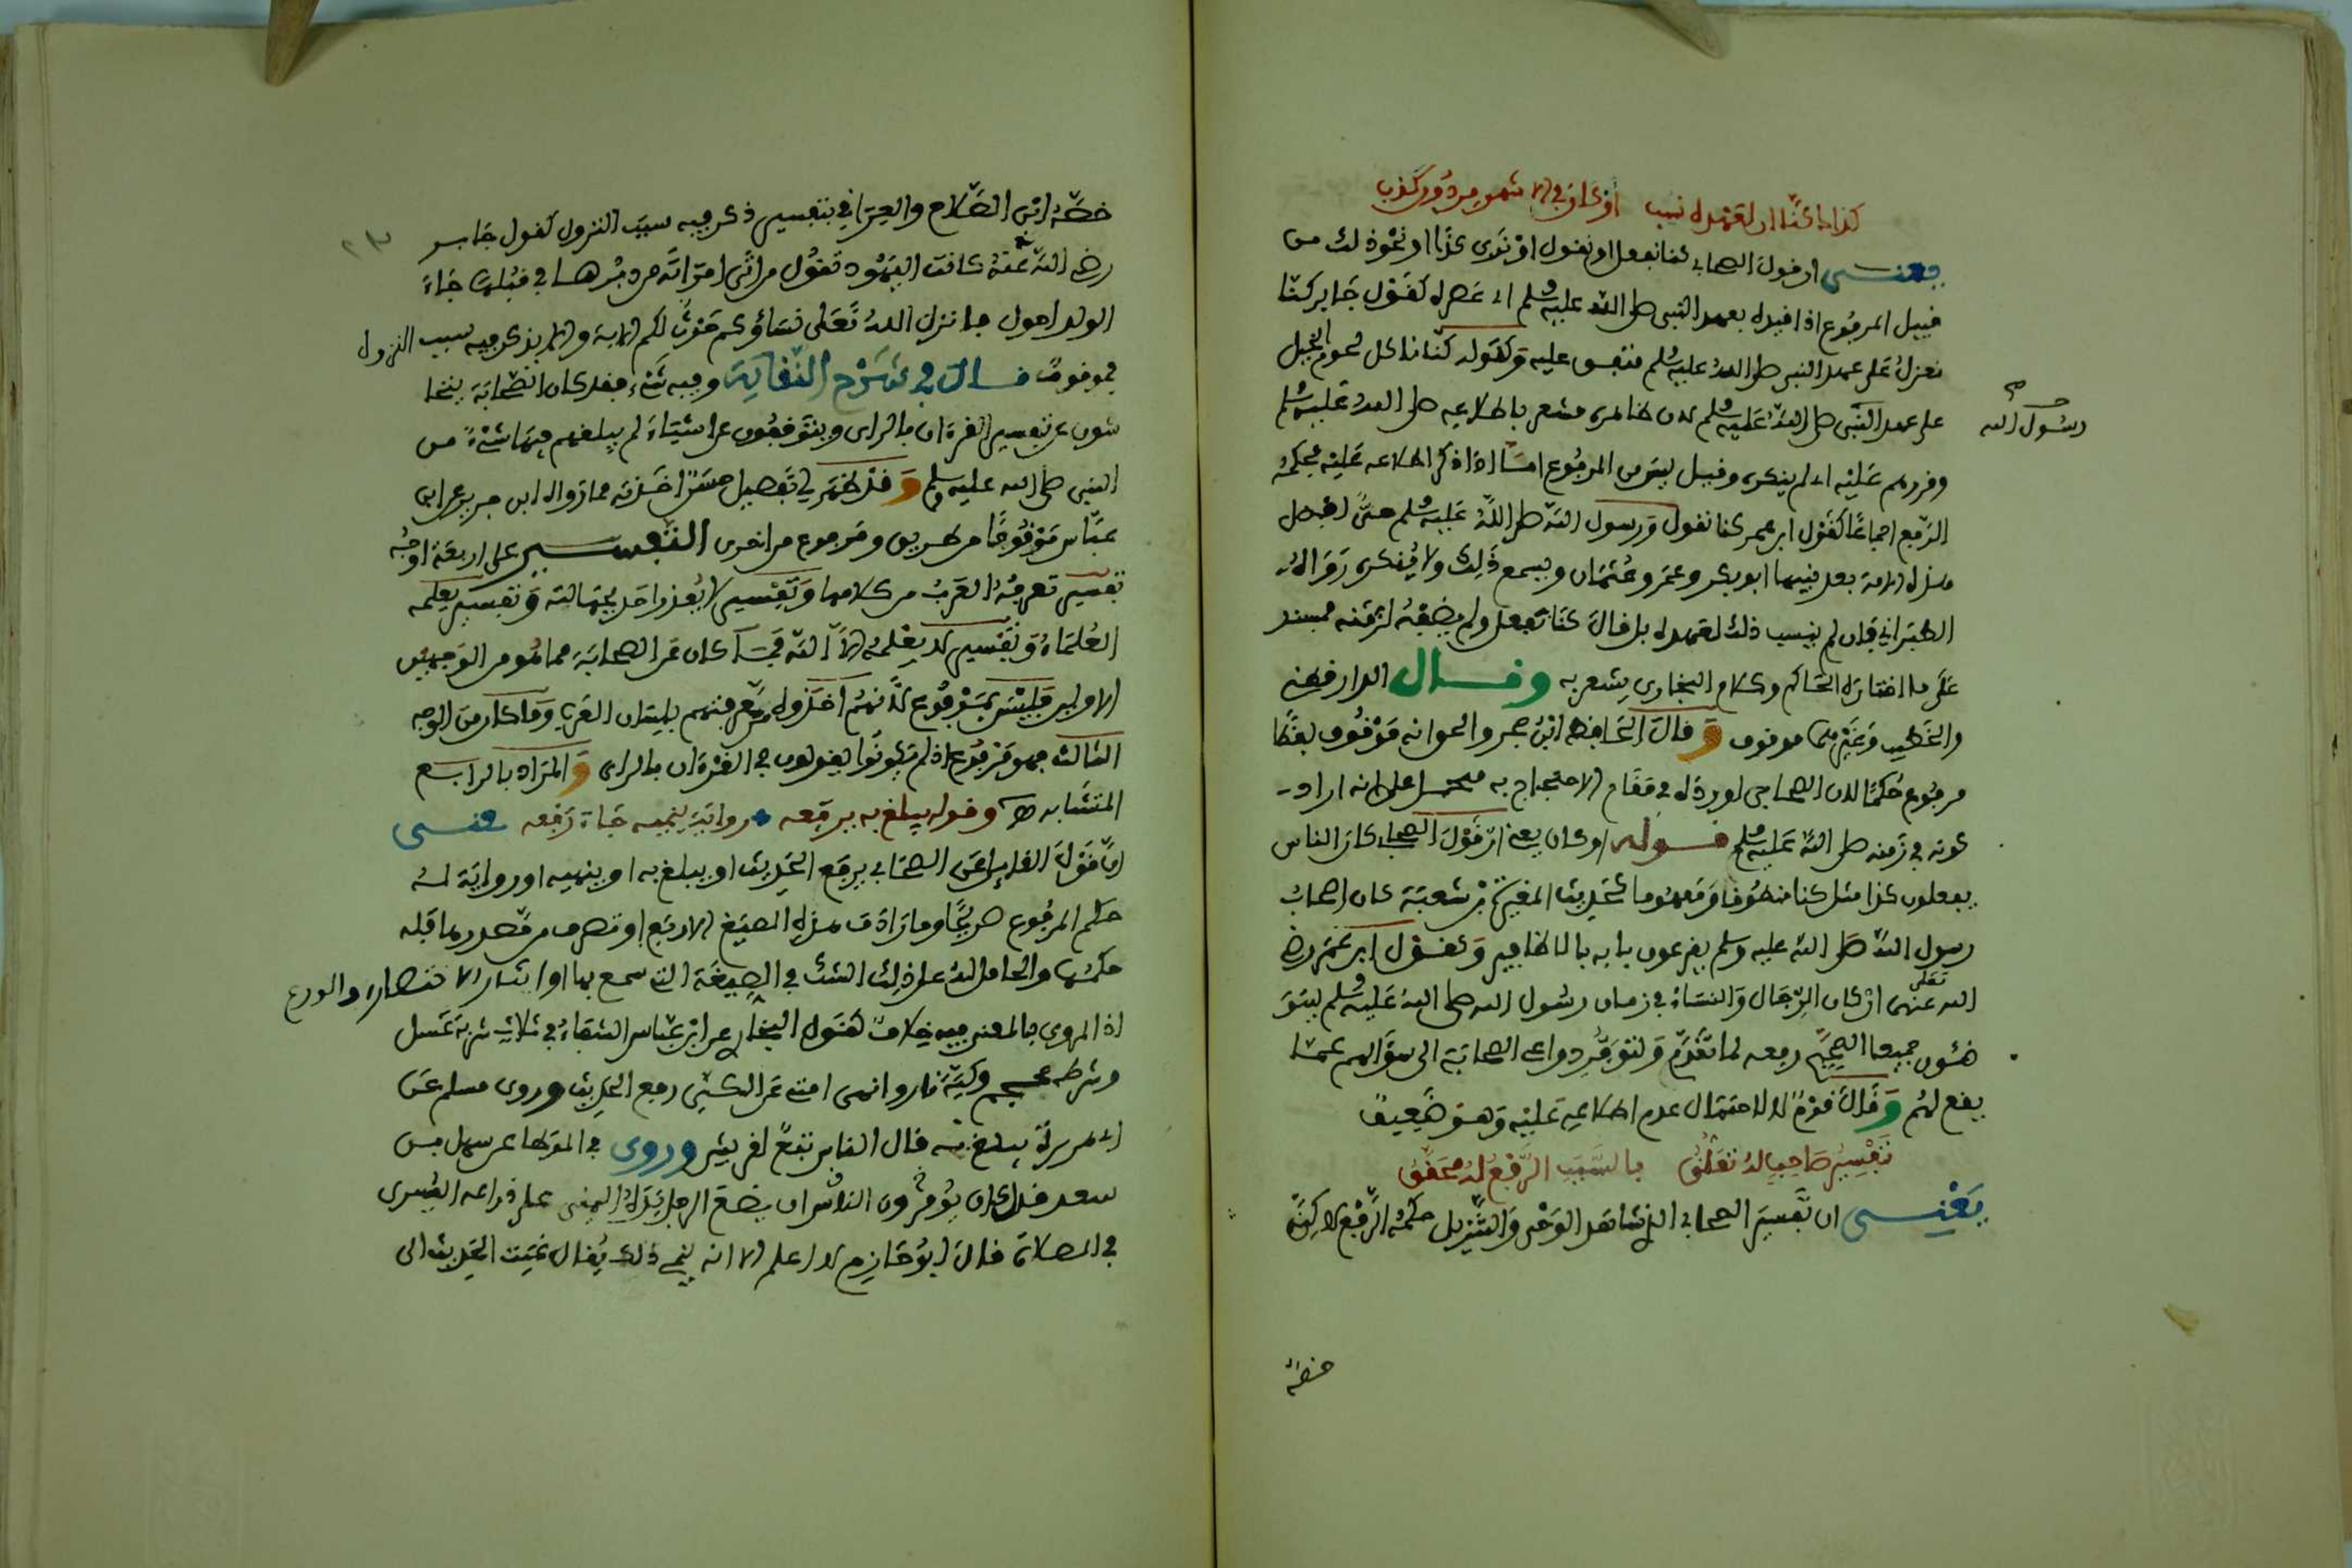 كذاك كنا ان لعهده نسب او كان في الا شهر مردود كذب
يعنى ان قول الصحابى كنا نفعل او نقول او نرى كذا او نحو ذلك من
قبيل المرفوع اذا قيده بعهد النبى صلى الله عليه وسلم اى عصره كقول جابر كنا
نعزل على عهد النبى صلى الله عليه وسلم متفق عليه وكقوله كنا ناكل لحوم الخيل
على عهد النبى صلى الله عليه وسلم لان ظاهره مشعر باطلاعه صلى الله عليه وسلم
رسول الله صح
وقررهم عليه اى لم ينكره وقيل ليس من المرفوع اما اذا ذكر اطلاعه عليه فحكمه
الرفع اجماعا كقول ابن عمر كنا نقول ورسول الله صلى الله عليه وسلم حى افضل
هذه الامة بعد نبيها ابو بكر وعمر وعثمان ويسمع ذلك ولا ينكره رواه
الطبرانى فان لم ينسب ذلك لعهده بل قال كنا نفعل ولم يضفه لزمنه فمسند
على ما اختاره الحاكم وكلام البخارى يشعر به وقال الدارقطنى
والخطيب وغيرهما موقوف وقال الحافظ ابن حجر والحق انه موقوف لفظا
مرفوع حكما لان الصحابى اورده فى مقام الاحتجاج به فيحمل على انه اراد
كونه فى زمنه صلى الله عليه وسلم قوله او كان يعنى ان قول الصحابى كان الناس
يفعلون كذا مثل كنا منطوقا ومفهوما كحديث المغيرة بن شعبة كان اصحاب
رسول الله صلى الله عليه وسلم يقرعون بابه بالاظافير وكقول ابن عمر رضى
الله تعلى عنهما ان كان الرجال والنساء فى زمان رسول الله صلى الله عليه وسلم ليتو
ضئون جميعا الصحيح رفعه لما تقدم ولتوفر دواعى الصحابة الى سؤالهم عما
يقع لهم وقال قوم لا لاحتمال عدم اطلاعه عليه وهو ضعيف
تفسير صاحب له تعلق بالسبب الرفع له محقق
يعنى ان تفسير الصحابى الذى شاهد الوحى والتنزيل حكمه الرفع لاكن
خصه
خصه ابن الصلاح والعراقى بتفسير ذكر فيه سبب النزول كقول جابر
رضى الله عنه كانت اليهود تقول من اتى امراته من دبرها فى قبلها جاء
الولد احول فانزل الله تعلى نساؤكم حرث لكم الاية والا يذكر فيه سبب النزول
فموقوف قال فى شرح النقاية وفيه شىء فقد كان الصحابة يتحا
شون عن تفسير القرءان بالراى ويتوقفون عن اشياء لم يبلغهم فيها شىء من
النبى صلى الله عليه وسلم وقد ظهر لى تفصيل حسن اخذته مما رواه ابن جرير عن ابن
عباس موقوفا من طريق ومرفوع من اخرى التفسير على اربعة اوجه
تفسير تعرفه العرب من كلامها وتفسير لا يعذر احد بجهالته وتفسير يعلمه
العلماء وتفسير لا يعلمه الا الله فما كان عن الصحابة مما هو من الوجهين
الاولين فليس بمرفوع لانهم اخذوه من معرفتهم بلسان العرب وما كان من الوجه
الثالث فهو مرفوع اذ لم يكونوا يقولون فى القرءان بالراى والمراد بالرابع
المتشابه وقوله يبلغ به يرفعه رواية ينميه جاء رفعه يعنى
ان قول القائل عن الصحابى يرفع الحديث او يبلغ به او ينميه او رواية له
حكم المرفوع صريحا وما زادت هذه الصيغ الاربع او تصرف من مصدر ما قبله
حكمها والحامل له على ذلك الشك فى الصيغة التى سمع بها او ايثار الاختصار والورع
اذ المروى بالمعنى فيه خلاف كقول البخارى عن ابن عباس الشفاء فى ثلاث شربة عسل
وشرطة محجم وكية نار وانهى امتى عن الكى رفع الحديث وروى مسلم عن
ابى هريرة يبلغ به قال الناس تبع لقريش وروى فى الموطا عن سهل بن
سعد قال كان يؤمرون الناس ان يضع الرجل يده اليمنى على ذراعه اليسرى
فى الصلاة قال ابو حازم لا اعلم الا انه ينمى ذلك يقال نميت الحديث الى